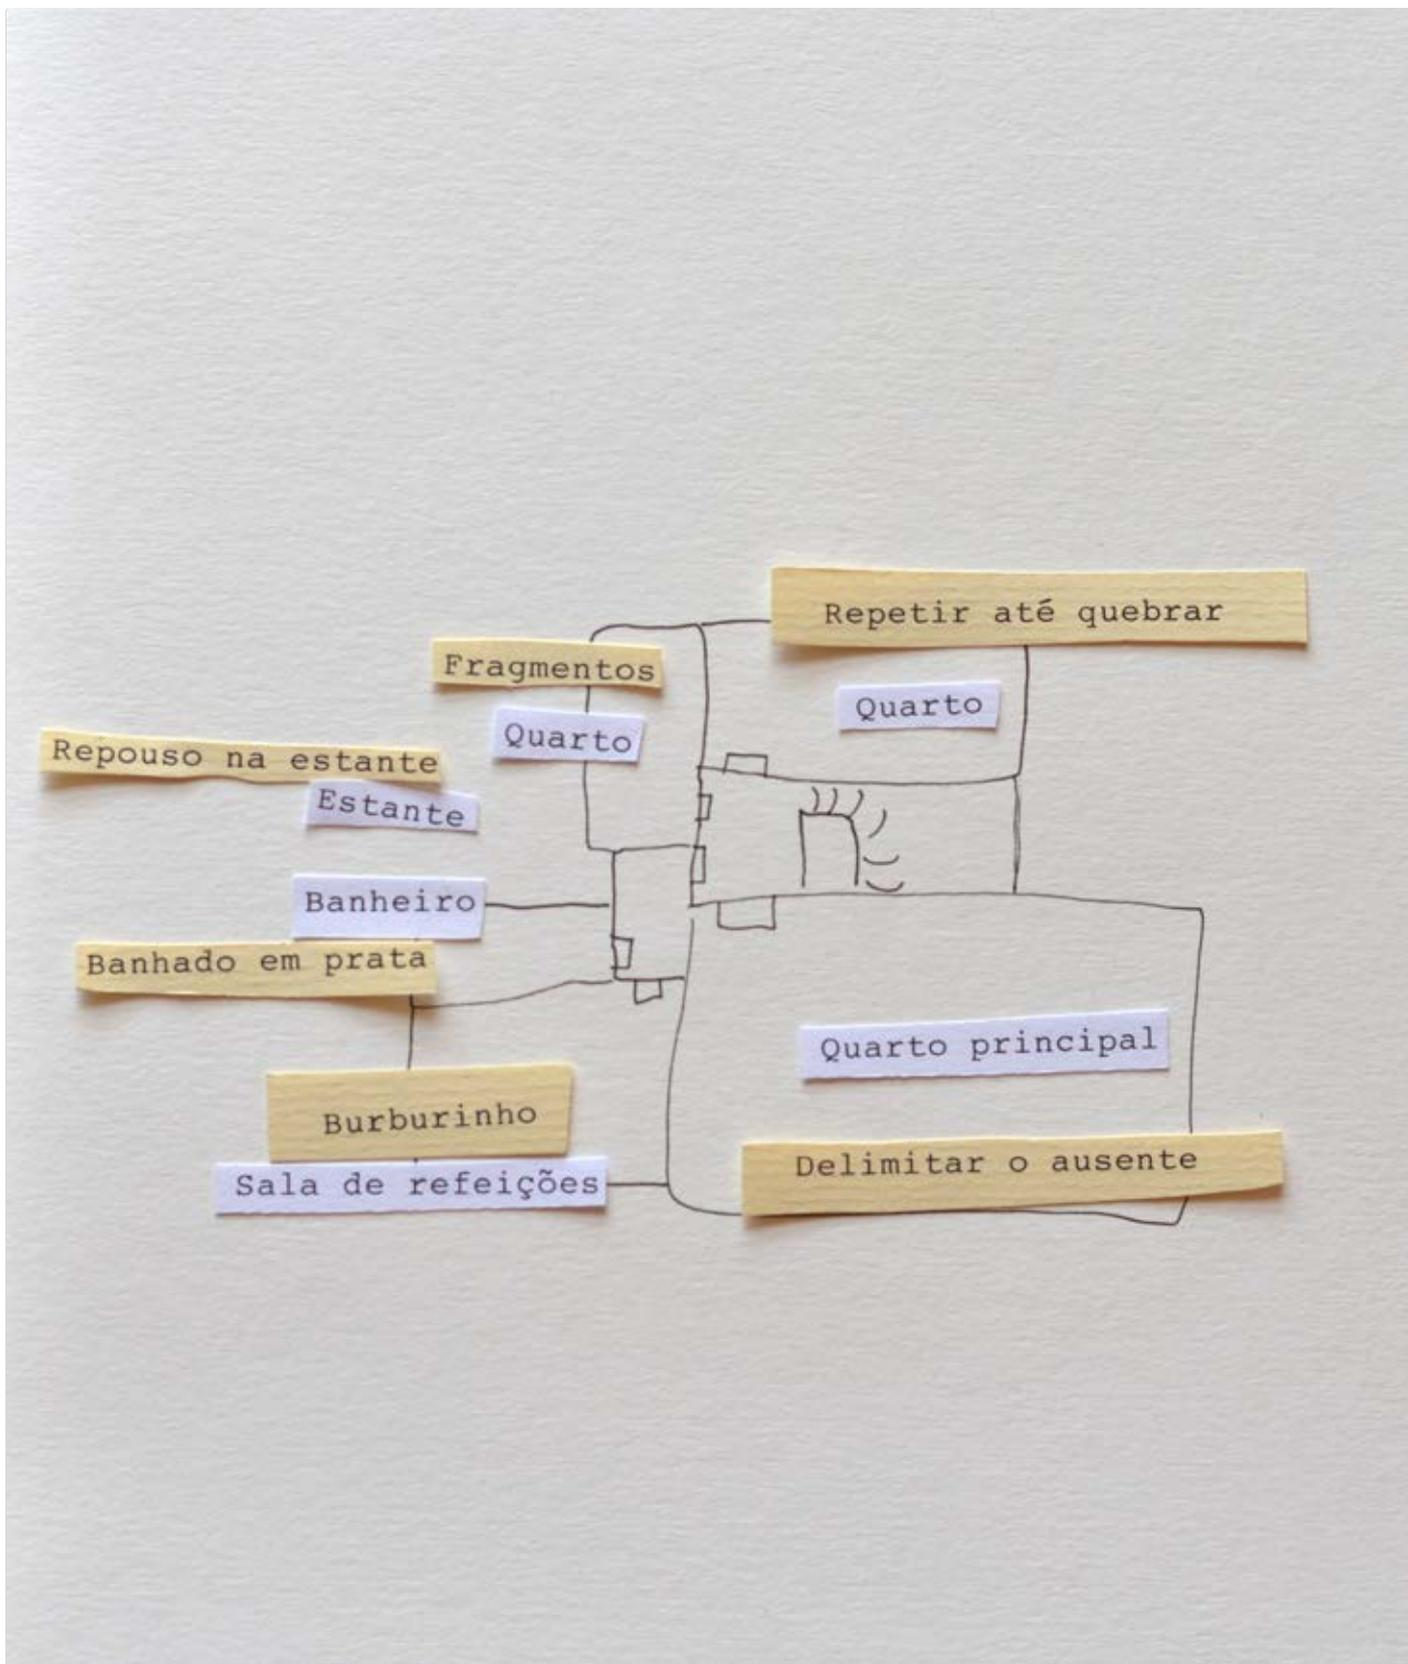 Repetir até quebrar
Fragmentos
Quarto
Quarto
Repouso na estante
Estante
Banheiro
Banhado em prata
Quarto principal
Burburinho
Delimitar o ausente
Sala de refeições